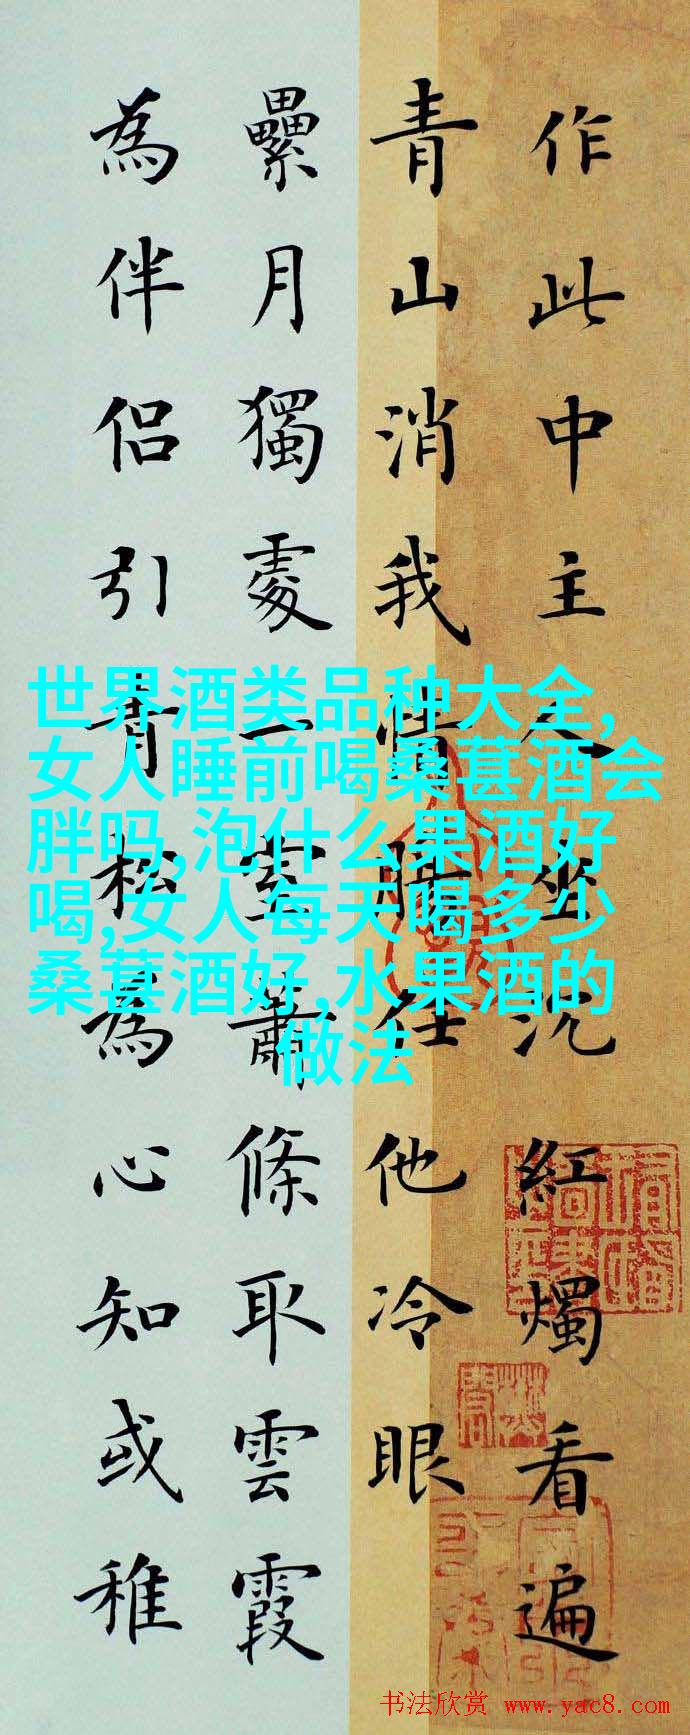 作此中主人坐沉紅燭看遍
青山消我情腸任他冷眼
纍月獨處一室蕭條取雲霞
為伴侶引青松為心知或稚
世界酒类品种大全,
女人睡前喝桑葚酒会
胖吗,泡什么果酒好
喝,女人每天喝多少
桑葚酒好,水果酒的
做法
书法欣赏 www.yac8.com